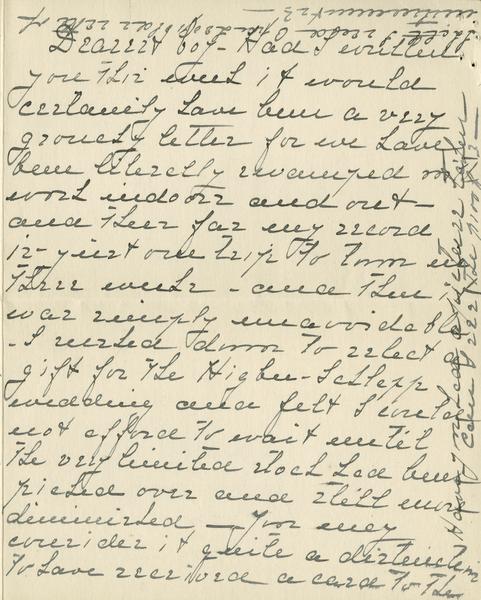 Dearest boy - Had I written
you this week it would
certainly have been a very
grouchy letter for we have
been literally swamped in
work indoors and out -
and thus far my record
is - just one trip to town in
three weeks - and then it
was simply unavoidable
- I rushed down to select a
gift for the Higbee - Schlepp
wedding and felt I could
not afford to wait until
the very limited stock had been
picked over and still more
diminished - You may
consider it quite a distinction
to have received a card to the
Have